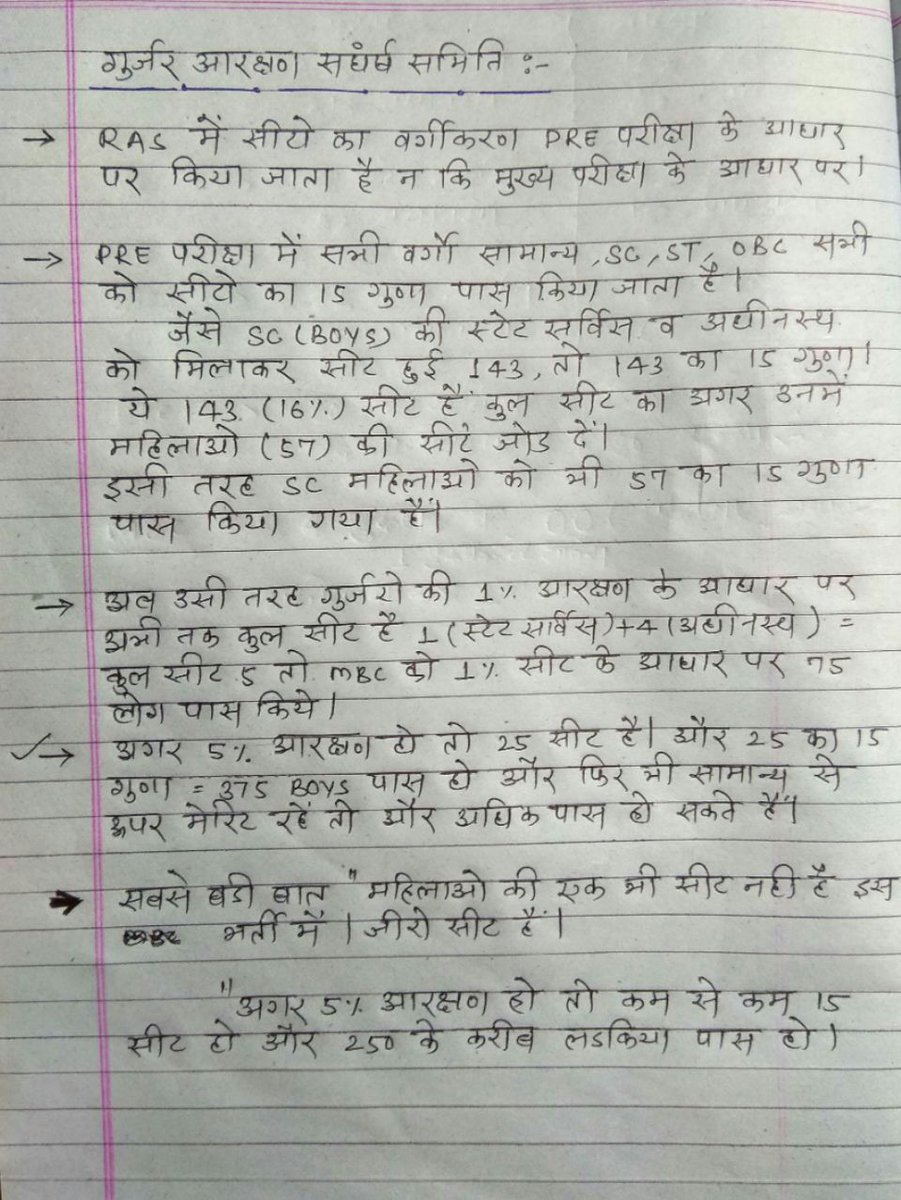 गुर्जर आरक्षण सघंर्ष समिति :-
→ RAS में सीटो का वर्गीकरण PRE परीक्षा के आधार
पर किया जाता है न कि मुख्य परीक्षा के आधार पर।
→ PRE परीक्षा में सभी वर्गो सामान्य, SC, ST, OBC सभी
को सीटो का 15 गुणा पास किया जाता है।
जैसे SC (BOYS) की स्टेट सर्विस व अधीनस्थ
को मिलाकर सीट हुई 143, तो 143 का 15 गुणा।
ये 143 (16%) सीट है कुल सीट का अगर उनमें
महिलाओ (57) की सीटे जोड दें।
इसी तरह SC महिलाओ को भी 57 का 15 गुणा
पास किया गया है।
→ अब उसी तरह गुर्जरो की 1% आरक्षण के आधार पर
अभी तक कुल सीट है 1 (स्टेट सर्विस)+4 (अधीनस्थ) =
कुल सीट 5 तो MBC को 1% सीट के आधार पर 75
लोग पास किये।
✓→ अगर 5% आरक्षण हो तो 25 सीट है। और 25 का 15
गुणा = 375 BOYS पास हो और फिर भी सामान्य से
ऊपर मेरिट रहें तो और अधिक पास हो सकते हैं"।
→ सबसे बडी बात "महिलाओ की एक भी सीट नही है इस
भर्ती में। जीरो सीट हैं।
"अगर 5% आरक्षण हो तो कम से कम 15
सीट हो और 250 के करीब लडकिया पास हो।